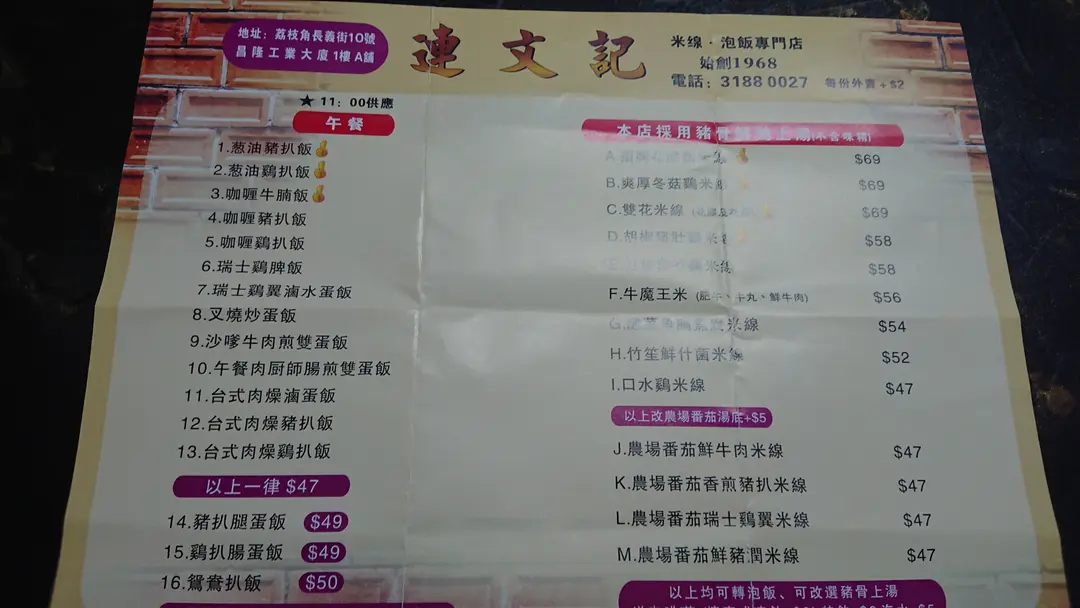 地址：荔枝角長義街10號
昌隆工業大廈1樓A舖
連文記
米線·泡飯專門店
始創1968
電話：3188 0027 每份外賣+$2
★ 11：00供應
午餐
1.葱油豬扒飯
2.葱油鷄扒飯
3.咖喱牛腩飯
4.咖喱豬扒飯
5.咖喱鷄扒飯
6.瑞士鷄脾飯
7.瑞士鷄翼滷水蛋飯
8.叉燒炒蛋飯
9.沙嗲牛肉煎雙蛋飯
10.午餐肉厨師腸煎雙蛋飯
11.台式肉燥滷蛋飯
12.台式肉燥豬扒飯
13.台式肉燥鷄扒飯
以上一律 $47
14.豬扒腿蛋飯 $49
15.鷄扒腸蛋飯 $49
16.鴛鴦扒飯 $50
本店採用豬骨上湯(不含味精)
A. $69
B.爽厚冬菇鷄米 $69
C.雙花米線 $69
D.胡椒豬肚鷄米 $58
米線 $58
F.牛魔王米 (肥牛、牛丸、鮮牛肉) $56
G.米線 $54
H.竹笙鮮什菌米線 $52
I.口水鷄米線 $47
以上改農場番茄湯底+$5
J.農場番茄鮮牛肉米線 $47
K.農場番茄香煎豬扒米線 $47
L.農場番茄瑞士鷄翼米線 $47
M.農場番茄鮮豬潤米線 $47
以上均可轉泡飯、可改選豬骨上湯